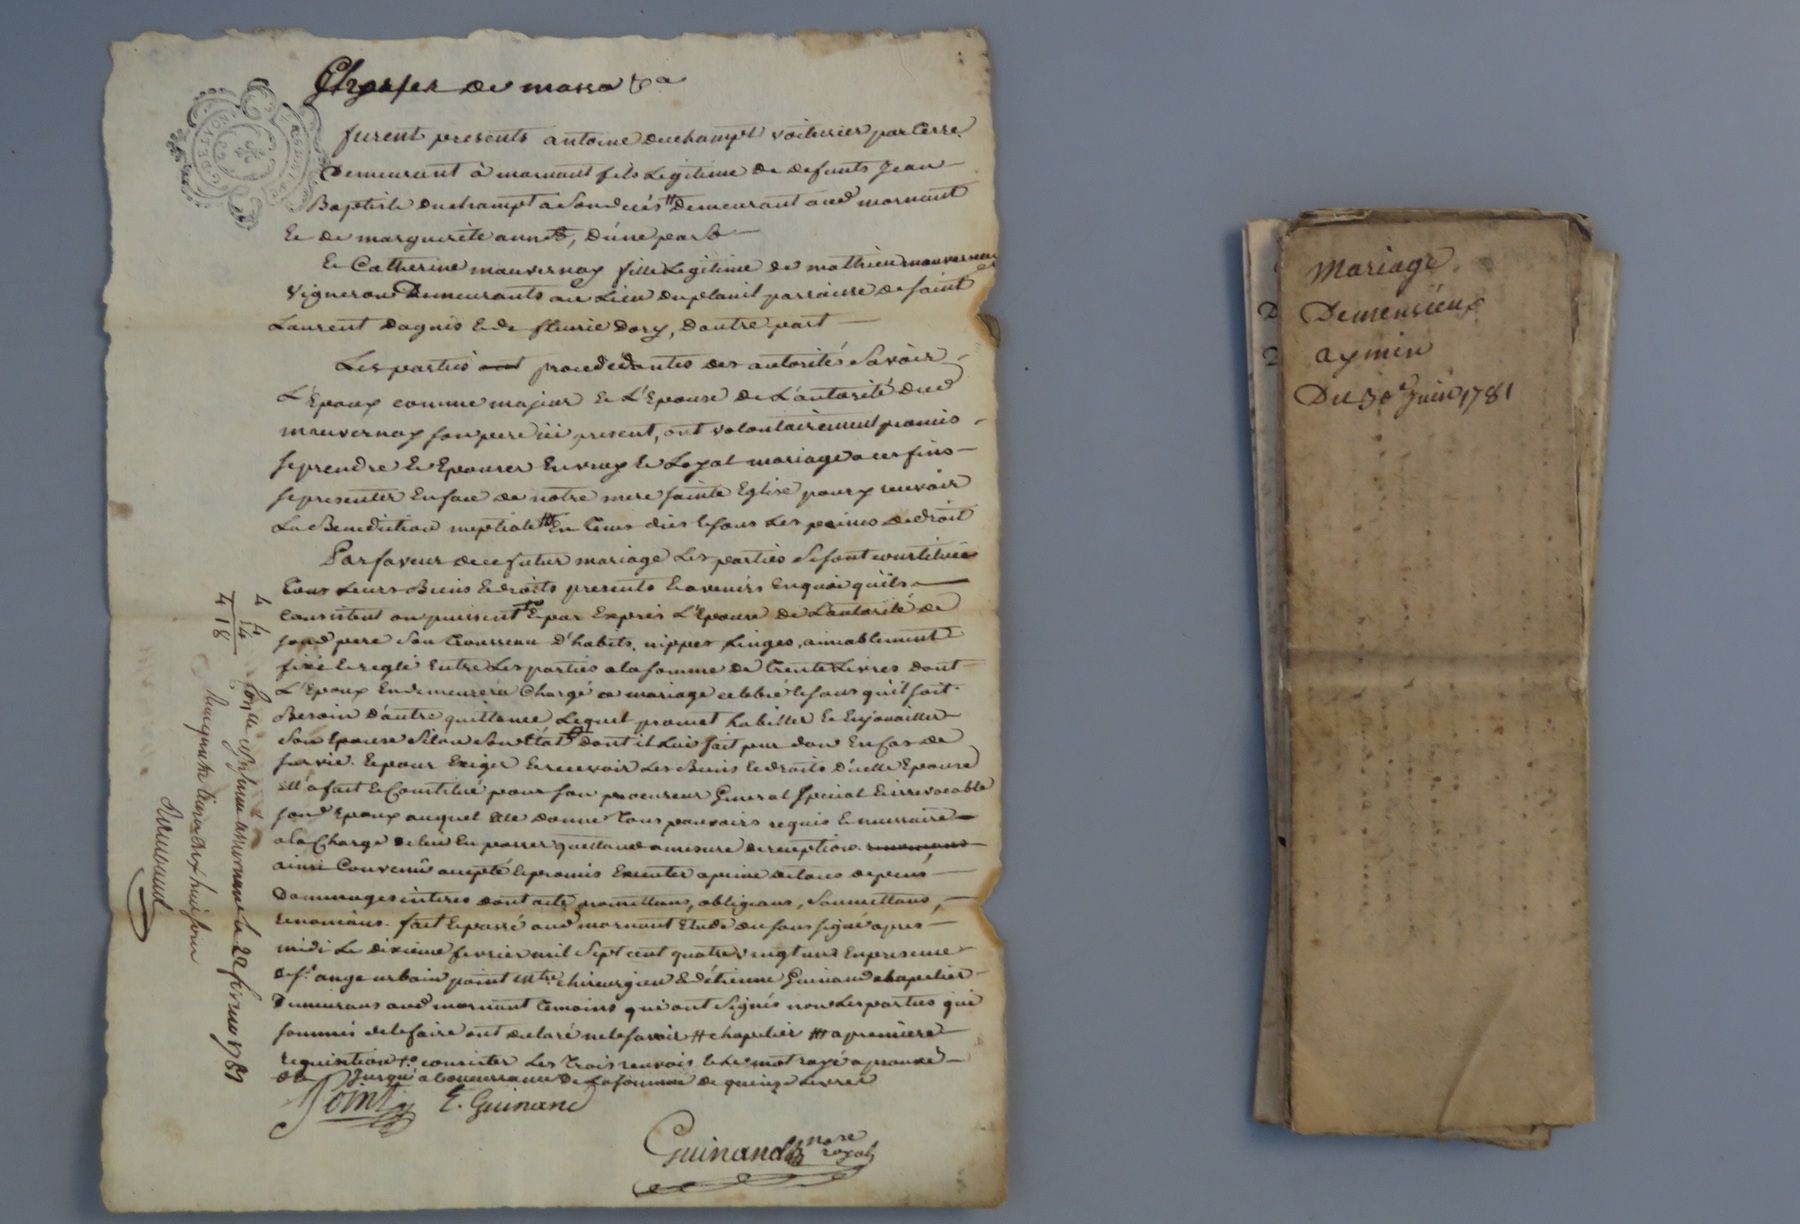 furent presents antoine duchampt voiturier par terre
Demeurant à mornant fils Legitime de defunts Jean
Baptiste duchampt a son deces # Demeurant aud mornant
Et de marguerite, d'une part
Et Catherine mauvernay fille Legitime de mathieu mauvernay
Vigneron Demeurants au Lieu parroisse de saint
Laurent dagnis et de fleurie Dory, D'autre part
Les parties procedantes des autorités Savoir
L'Epoux comme majeur Et L'Epouse de L'autorité dud
mauvernay son pere ici present, ont volontairement promis
se prendre Et Epouser En vray Et Loyal mariage a ces fins
se presenter En face de notre mere sainte Eglise pour y recevoir
La Benediction nuptiale En tems dues Et sous Les peines de droit
Par faveur de ce futur mariage Les parties se sont constitué
tous Leurs Biens Et droits presents Et avenirs En quoi qu'ils
consistent ou puissent Et par Exprès L'Epouse de L'autorité de
sond pere son trousseau D'habits, nippes Linges, amiablement
fixé Et reglé Entre Les parties a la somme de trente Livres dont
L'Epoux En demeurera Chargé ce mariage celebré Et sans qu'il soit
Besoin D'autre quittance Lequel promet habiller Et Enjouailler
son Epouse selon son Etat dont il Lui fait pur don En cas de
survie. Et pour Exiger Et recevoir Les Biens Et droits D'icelle Epouse
Ell' a fait Et Constitué pour son procureur General special Et irrevocable
sond Epoux auquel Elle donne tous pouvoirs requis Et necessaire
a la Charge de lui En passer quittance a mesure de reception.
ainsi Convenû accepté Et promis Executer a peine de tous depens
Dommages interes dont acte promettans, obligeans, Soumettans,
renoncans. fait Et passé aud mornant Etude du sous signé apres
midi Le dixieme fevrier mil sept cent quatre vingt un En presence
de s.r ange urbain point m.tre chirurgien Et d'étienne Guinand chapelier
Demeurans aud mornant temoins qui ont signés non Les parties qui
sommés de le faire ont declaré ne le savoir # chapelier # a premiere
requisition consister Les trois renvois Et Le mot rayé approuvé
jusqu'a concurrence De La somme de quinze Livres
Point E. Guinand
Guinand no.re royal
4 4
4
4 18
mornant Le 22 fevrier 1781
Mariage
Demensieux
aymin
Du 30e Juin 1781